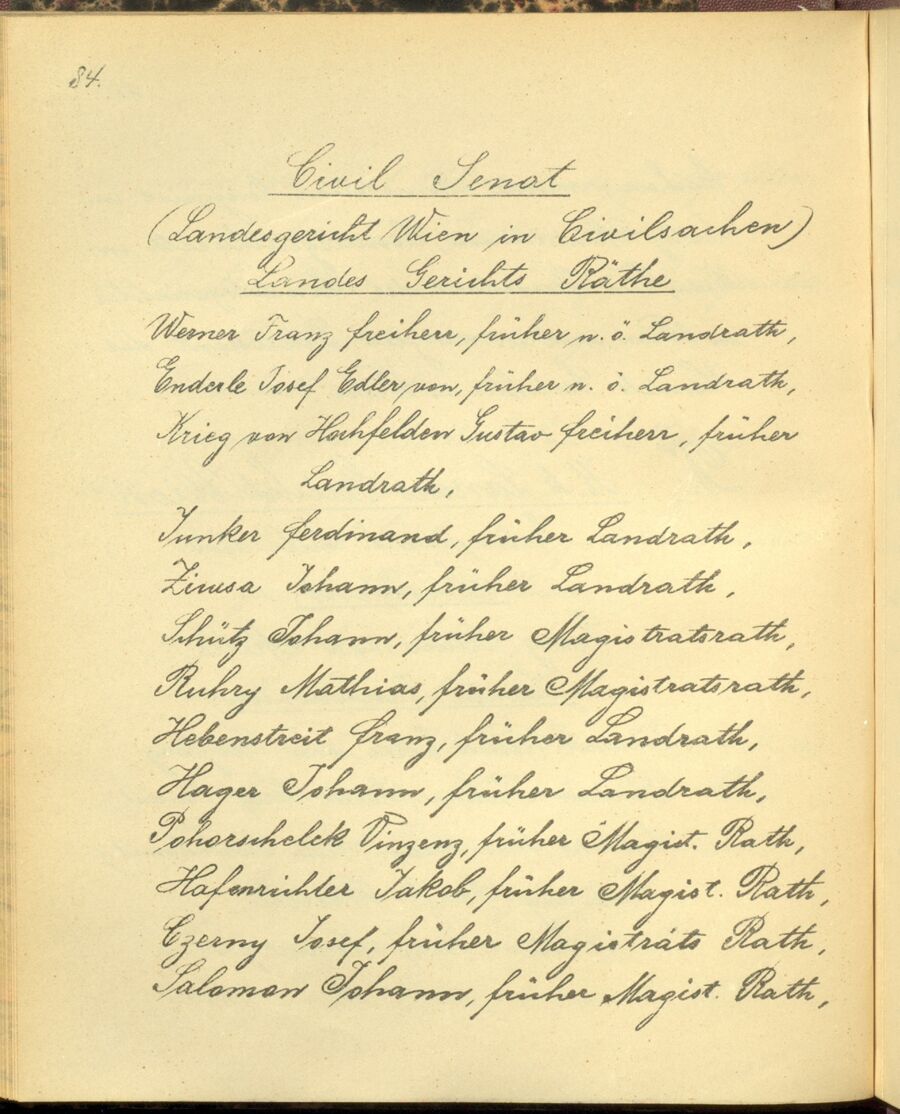 84.
Civil Senat
(Landesgericht Wien in Civilsachen)
Landes Gerichts Räthe
Werner Franz freiherr, früher n. ö. Landrath,
Enderle Josef Edler von, früher n. ö. Landrath,
Krieg von Hochfelden Gustav freiherr, früher
Landrath,
Junker ferdinand, früher Landrath,
Johann, früher Landrath,
Schütz Johann, früher Magistratsrath,
Ruhry Mathias, früher Magistratsrath,
Hebenstreit franz, früher Landrath,
Hager Johann, früher Landrath,
Pohorschelek Vinzenz, früher Magist. Rath,
Hafenrichter Jakob, früher Magist. Rath,
Czerny Josef, früher Magistrats Rath,
Salomon Johann, früher Magist. Rath,